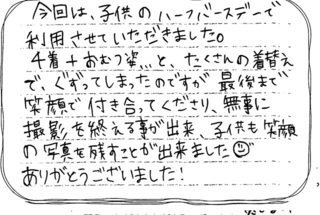 今回は、子供のハーフバースデーで
利用させていただきました。
4着+おむつ姿…と、たくさんの着替え
で、ぐずってしまったのですが 最後まで
笑顔で付き合ってくださり、無事に
撮影を終える事が出来、子供も笑顔
の写真を残すことが出来ました☺
ありがとうございました!